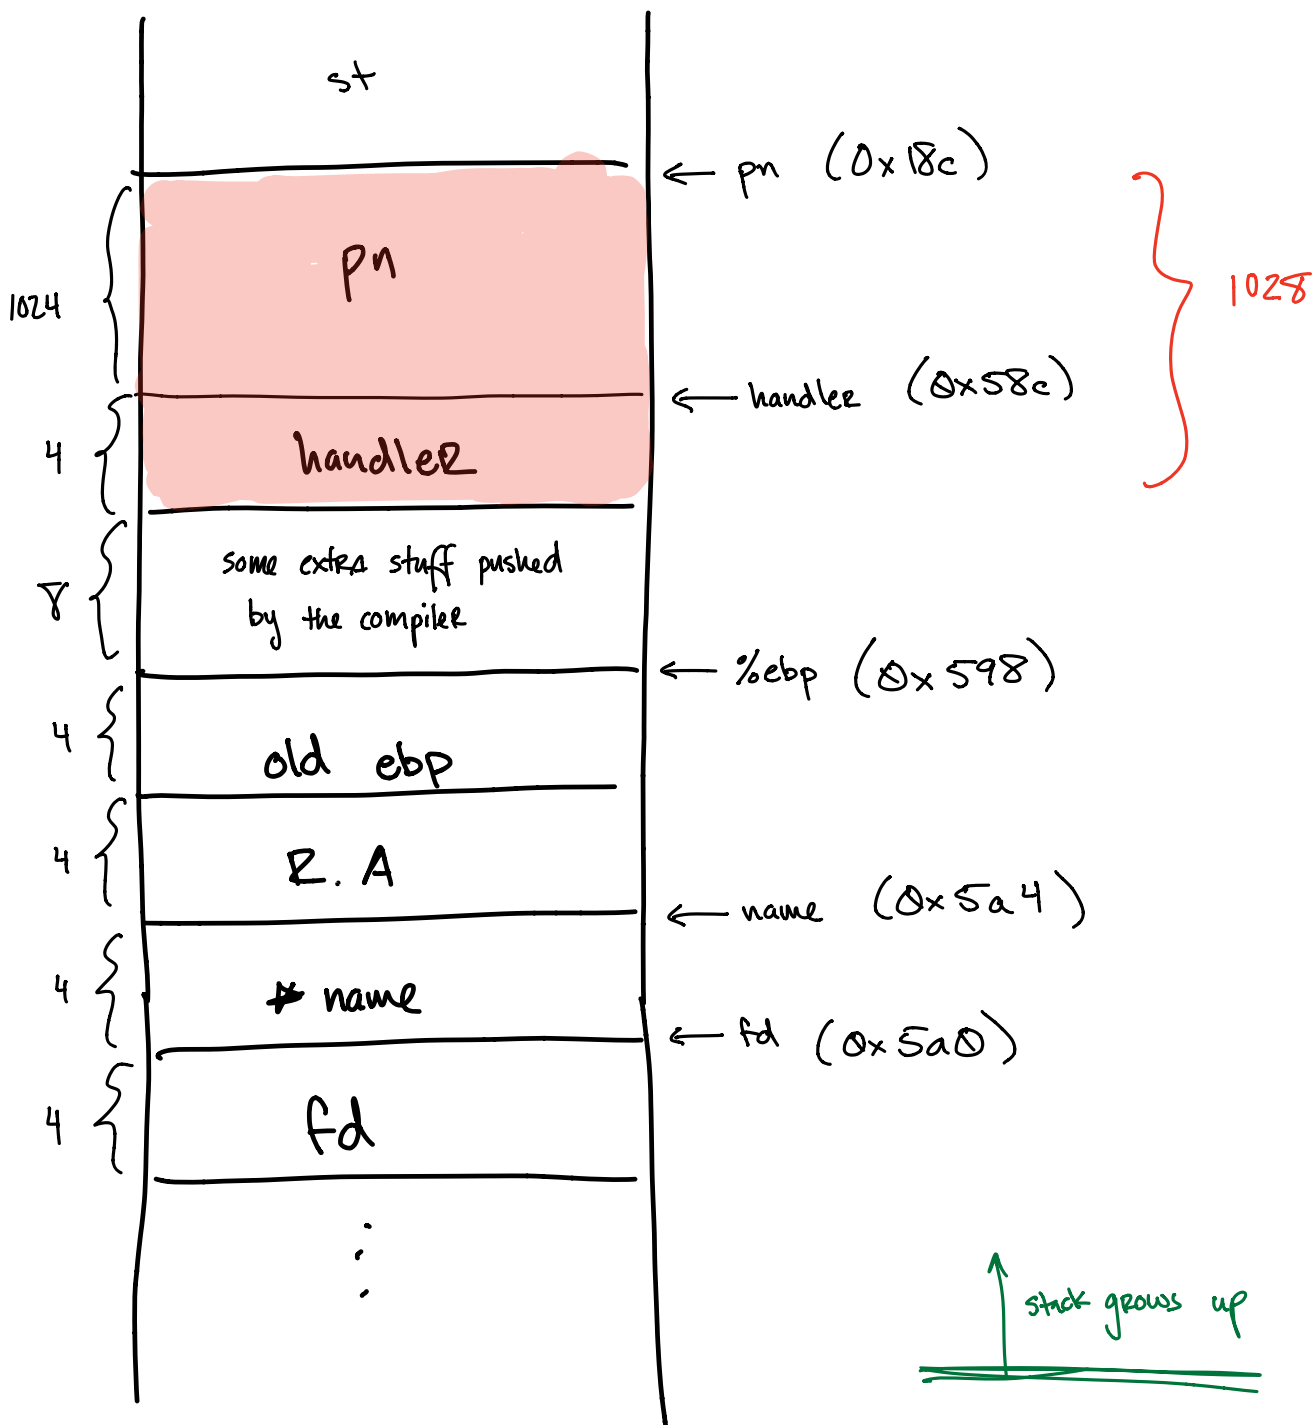 st
pn (0x18c)
1024
pn
1028
handler (0x58c)
4
handler
8
some extra stuff pushed
by the compiler
%ebp (0x598)
4
old ebp
4
R.A
name (0x5a4)
4
* name
fd (0x5a0)
4
fd
stack grows up